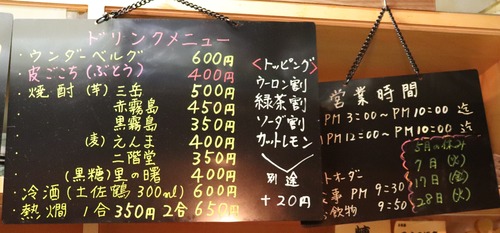 ドリンクメニュー
・ウンダーベルグ 600円
・皮ごこち(ぶどう) 400円
・焼酎(芋)三岳 500円
赤霧島 450円
黒霧島 350円
(麦)えんま 400円
二階堂 350円
(黒糖)里の曙 400円
・冷酒(土佐鶴300ml)600円
・熱燗 1合350円 2合650円
<トッピング>
ウーロン割
緑茶割
ソーダ割
カットレモン
別途
+20円
営業時間
PM 3:00~PM 10:00 迄
PM 12:00~PM 10:00 迄
5月の休み
7日(火)
17日(金)
28日(火)
トオーダー
事 PM 9:30
飲物 9:50